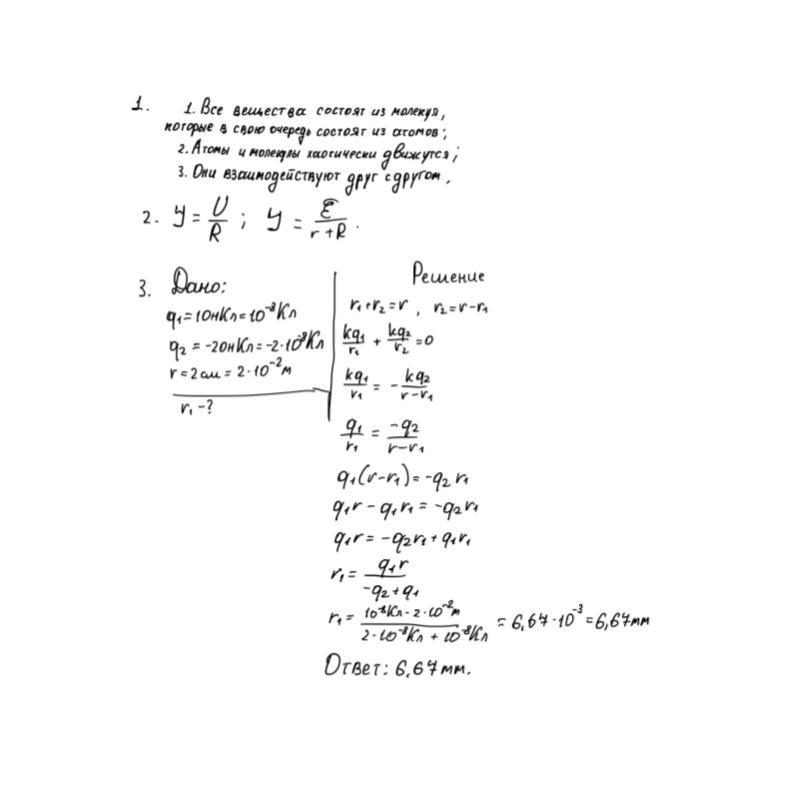 1. 1. Все вещества состоят из молекул,
которые в свою очередь состоят из атомов;
2. Атомы и молекулы хаотически движутся;
3. Они взаимодействуют друг с другом.
2. У = U/R ; У = Ɛ/(r+R).
3. Дано:
q₁=10нКл=10⁻⁸Кл
q₂=-20нКл=-2·10⁻⁸Кл
r=2см=2·10⁻²м
r₁-?
Решение
r₁+r₂=r, r₂=r-r₁
kq₁/r₁ + kq₂/r₂ =0
kq₁/r₁ = - kq₂/(r-r₁)
q₁/r₁ = -q₂/(r-r₁)
q₁(r-r₁)=-q₂r₁
q₁r-q₁r₁=-q₂r₁
q₁r=-q₂r₁+q₁r₁
r₁= q₁r/(-q₂+q₁)
r₁= (10⁻⁸Кл·2·10⁻²м)/(2·10⁻⁸Кл+10⁻⁸Кл) = 6,67·10⁻³=6,67мм
Ответ: 6,67мм.